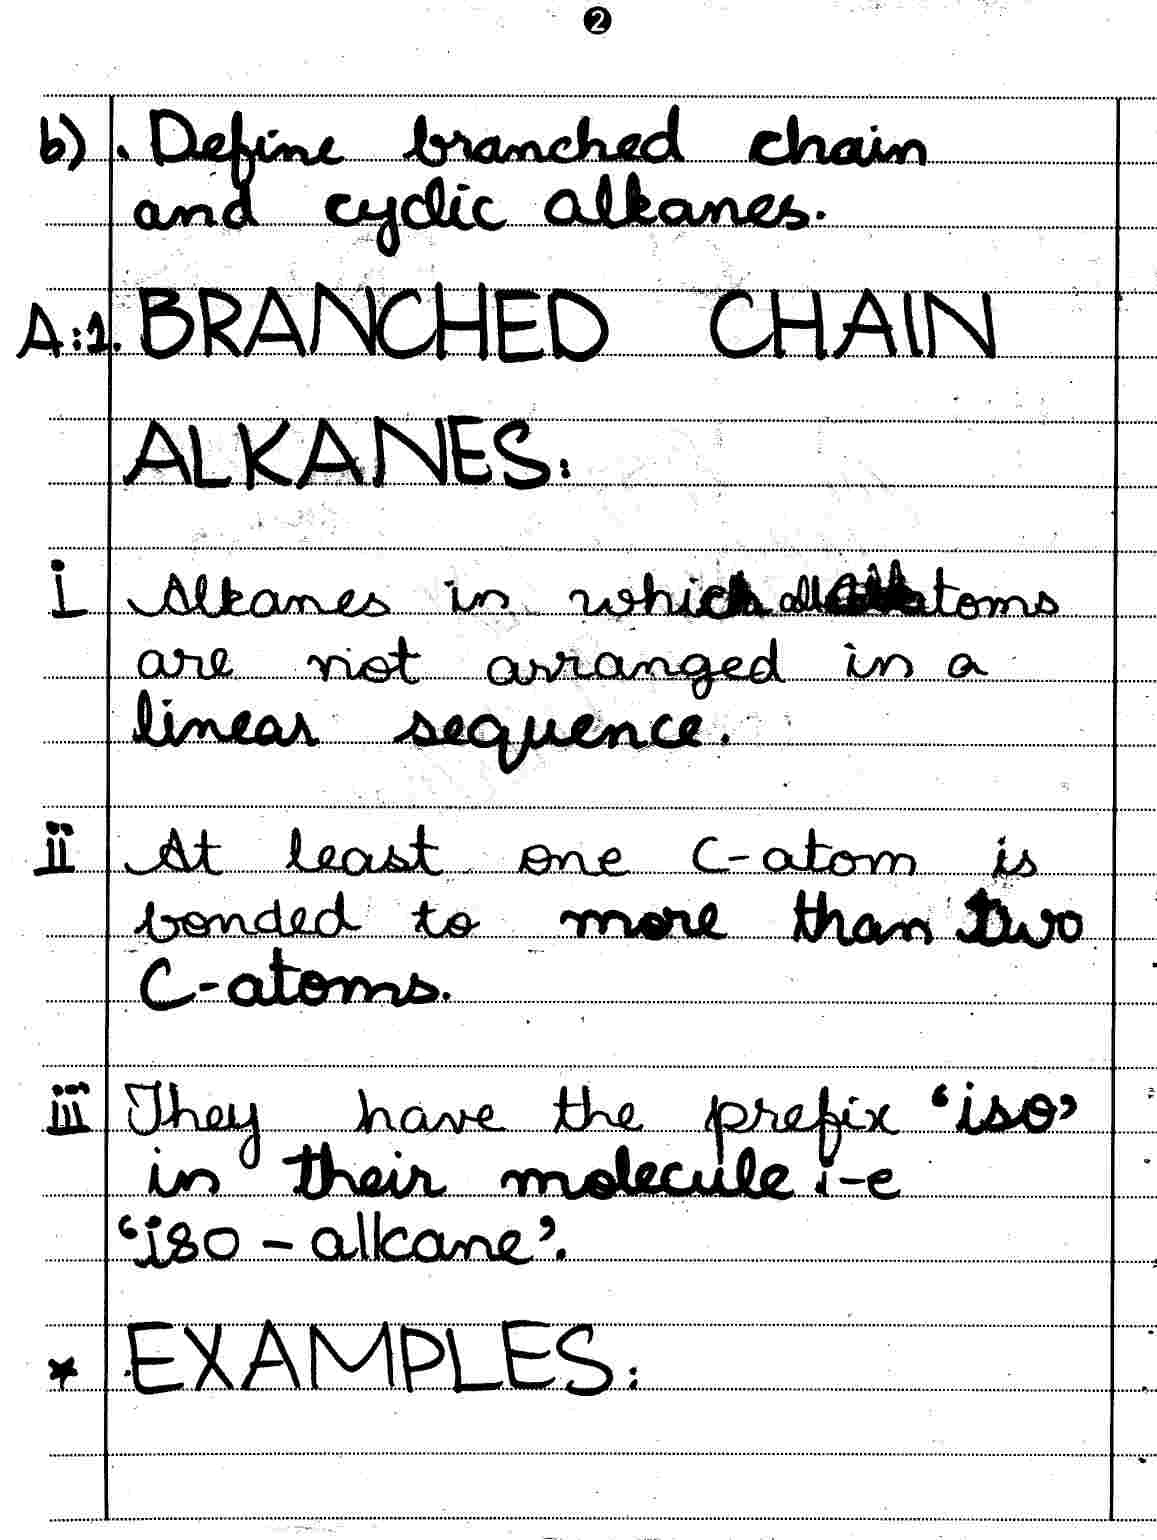 2
b). Define branched chain
and cyclic alkanes.
A:1. BRANCHED CHAIN
ALKANES:
i Alkanes in which all atoms
are not arranged in a
linear sequence.
ii At least one C-atom is
bonded to more than two
C-atoms.
iii They have the prefix ‘iso’
in their molecule i-e
‘iso-alkane’.
* EXAMPLES: